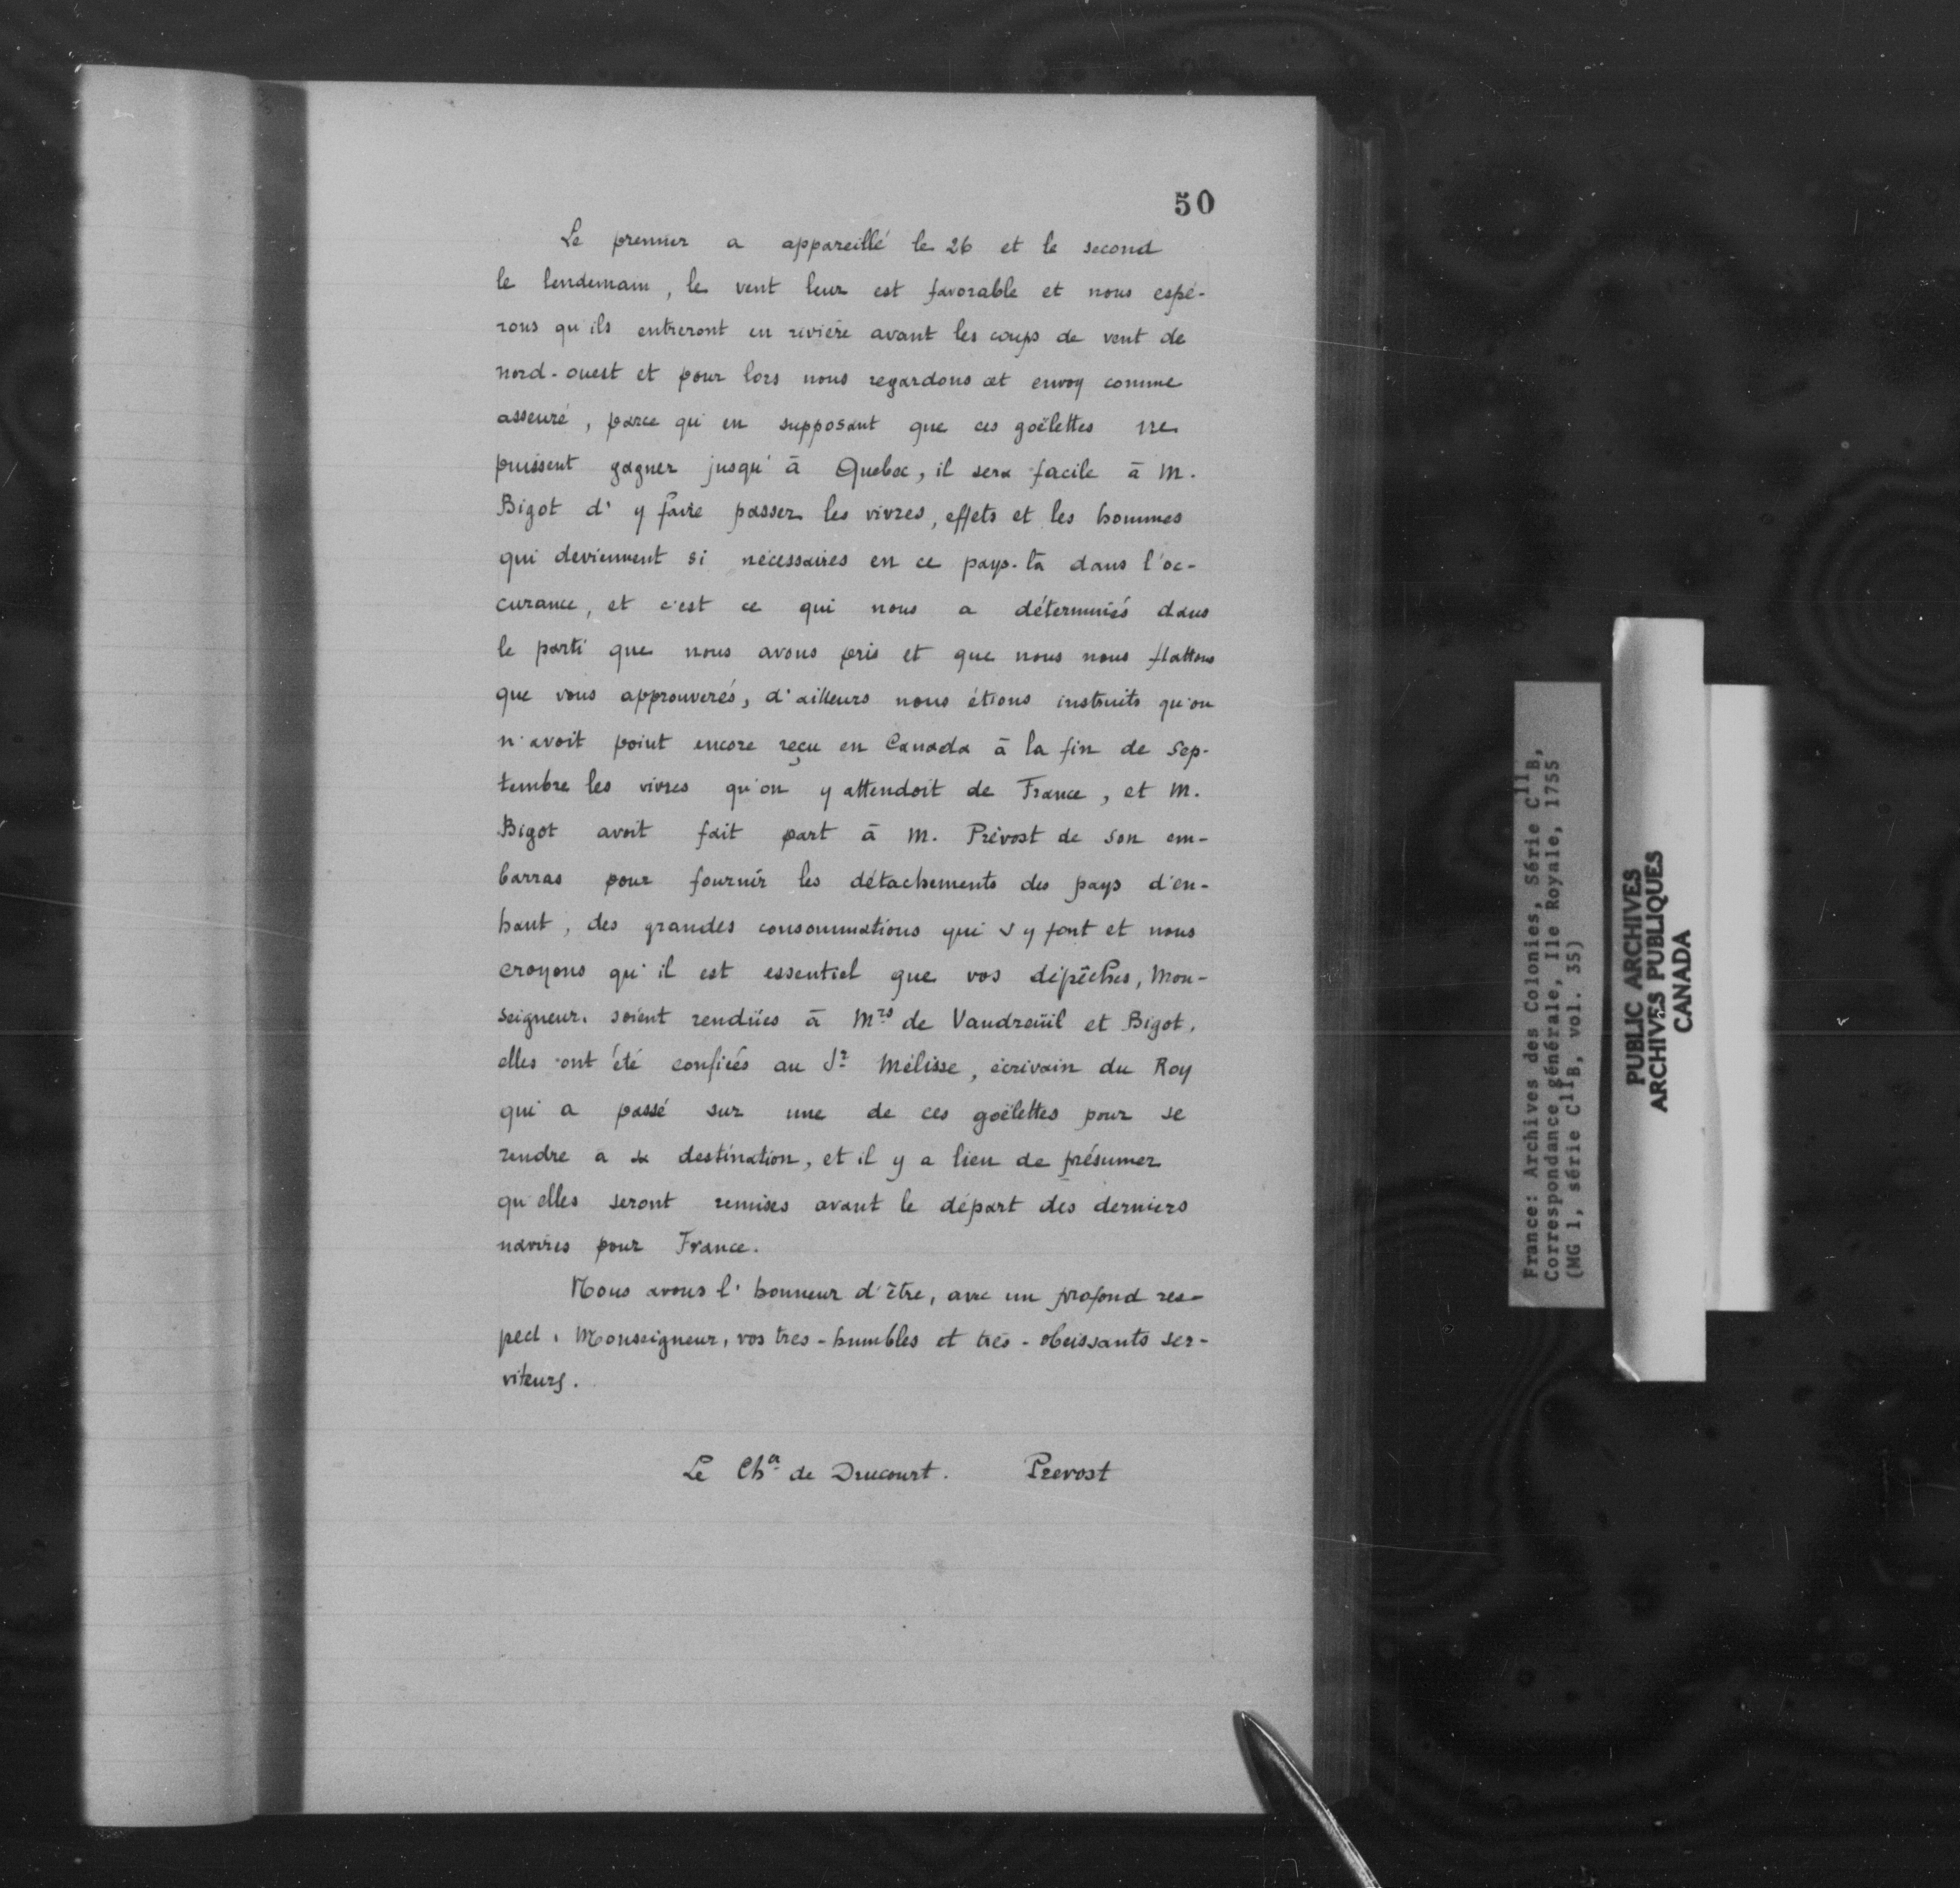 50
Le premier a appareillé le 26 et le second
le lendemain, le vent leur est favorable et nous espé-
rons qu'ils entreront en rivière avant les coups de vent de
nord-ouest et pour lors nous regardons cet envoy comme
asseuré, parce qu'en supposant que ces goëlettes ne
puissent gagner jusqu'à Quebec, il sera facile à M.
Bigot d'y faire passer les vivres, effets et les hommes
qui deviennent si nécessaires en ce pays-là dans l'oc-
curance, et c'est ce qui nous a déterminés dans
le parti que nous avons pris et que nous nous flattons
que vous approuverés, d'ailleurs nous étions instruits qu'on
n'avoit point encore reçu en Canada à la fin de Sep-
tembre les vivres qu'on y attendoit de France, et M.
Bigot avoit fait part à M. Prévost de son em-
barras pour fournir les détachements des pays d'en-
haut, des grandes consommations qui s'y font et nous
croyons qu'il est essentiel que vos dépêches, Mon-
seigneur, soient rendües à Mrs de Vaudreüil et Bigot,
elles ont été confiées au Sr Mélisse, écrivain du Roy
qui a passé sur une de ces goëlettes pour se
rendre à sa destination, et il y a lieu de présumer
qu'elles seront remises avant le départ des derniers
navires pour France.
Nous avons l'honneur d'être, avec un profond res-
pect, Monseigneur, vos tres-humbles et très-obeissants ser-
viteurs.
Le Cher de Drucourt. Prevost
France: Archives des Colonies, Série C11B,
Correspondance générale, Ile Royale, 1755
(MG 1, série C11B, vol. 35)
PUBLIC ARCHIVES
ARCHIVES PUBLIQUES
CANADA